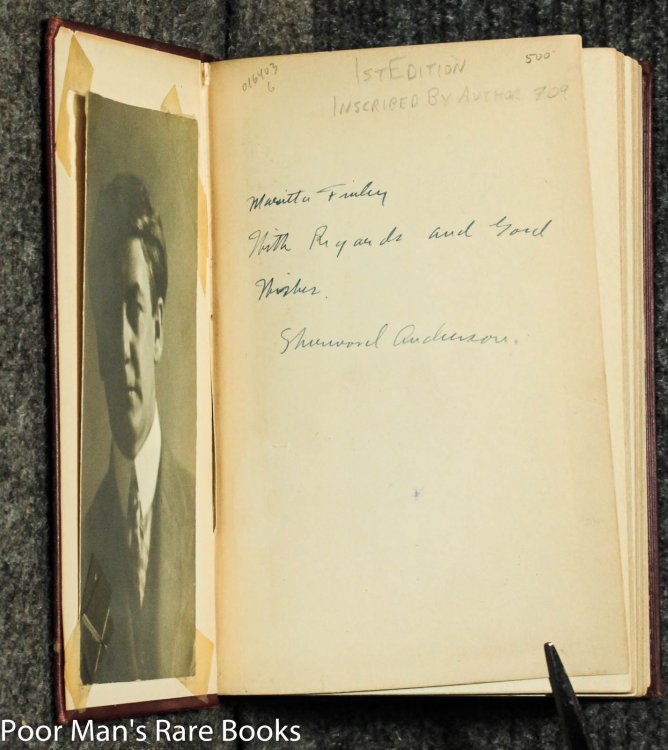 016403
6
500
1ST EDITION
INSCRIBED BY AUTHOR 709
Marietta Finley
With Regards and Good
Wishes.
Sherwood Anderson.
Poor Man's Rare Books